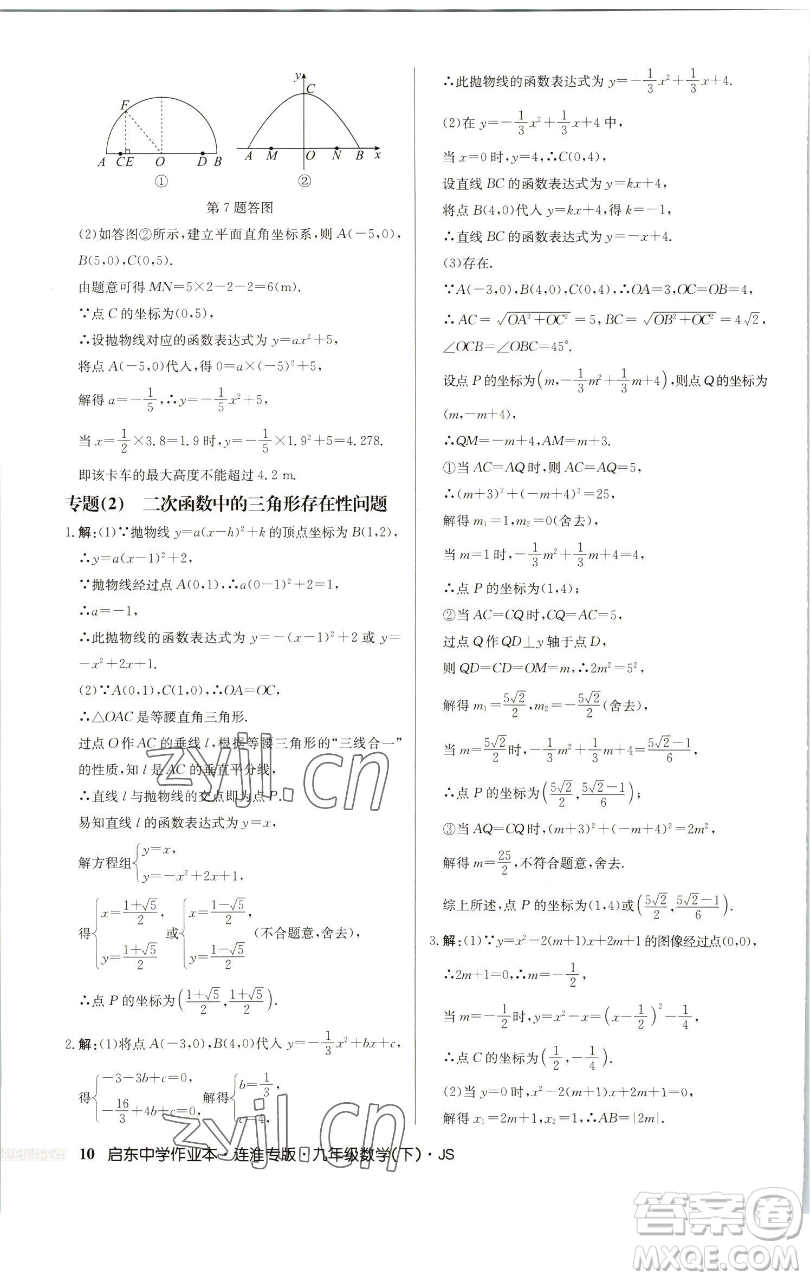 F
A CE O D B
①
y
C
A M O N B x
②
第 7 题答图
(2)如答图②所示,建立平面直角坐标系,则 A(-5,0),
B(5,0),C(0,5).
由题意可得 MN=5×2-2-2=6(m).
∵点 C 的坐标为(0,5),
∴设抛物线对应的函数表达式为 y=ax²+5,
将点 A(-5,0)代入,得 0=a×(-5)²+5,
解得 a=-1/5,∴y=-1/5x²+5,
当 x=1/2×3.8=1.9 时,y=-1/5×1.9²+5=4.278.
即该卡车的最大高度不能超过 4.2 m.
专题(2) 二次函数中的三角形存在性问题
1.解:(1)∵抛物线 y=a(x-h)²+k 的顶点坐标为 B(1,2),
∴y=a(x-1)²+2,
∵抛物线经过点 A(0,1),∴a(0-1)²+2=1,
∴a=-1,
∴此抛物线的函数表达式为 y=-(x-1)²+2 或 y=
-x²+2x+1.
(2)∵A(0,1),C(1,0),∴OA=OC,
∴△OAC 是等腰直角三角形.
过点 O 作 AC 的垂线 l,根据等腰三角形的“三线合一”
的性质,知 l 是 AC 的垂直平分线,
∴直线 l 与抛物线的交点即为点 P.
易知直线 l 的函数表达式为 y=x,
解方程组{y=x, y=-x²+2x+1,
得{x=(1+√5)/2, y=(1+√5)/2 或{x=(1-√5)/2, y=(1-√5)/2 (不合题意,舍去),
∴点 P 的坐标为((1+√5)/2,(1+√5)/2).
2.解:(1)将点 A(-3,0),B(4,0)代入 y=-1/3x²+bx+c,
得{-3-3b+c=0, -16/3+4b+c=0, 解得{b=1/3, c=4,
∴此抛物线的函数表达式为 y=-1/3x²+1/3x+4.
(2)在 y=-1/3x²+1/3x+4 中,
当 x=0 时,y=4,∴C(0,4),
设直线 BC 的函数表达式为 y=kx+4,
将点 B(4,0)代入 y=kx+4,得 k=-1,
∴直线 BC 的函数表达式为 y=-x+4.
(3)存在.
∵A(-3,0),B(4,0),C(0,4),∴OA=3,OC=OB=4,
∴AC=√(OA²+OC²)=5,BC=√(OB²+OC²)=4√2,
∠OCB=∠OBC=45°.
设点 P 的坐标为(m,-1/3m²+1/3m+4),则点 Q 的坐标为
(m,-m+4),
∴QM=-m+4,AM=m+3.
①当 AC=AQ 时,AC=AQ=5,
∴(m+3)²+(-m+4)²=5²,
解得 m₁=1,m₂=0(舍去),
当 m=1 时,-1/3m²+1/3m+4=4,
∴点 P 的坐标为(1,4);
②当 AC=CQ 时,CQ=AC=5,
过点 Q 作 QD⊥y 轴于点 D,
则 QD=CD=OM=m,∴2m²=5²,
解得 m₁=5√2/2,m₂=-5√2/2(舍去),
当 m=5√2/2 时,-1/3m²+1/3m+4=(5√2-1)/6,
∴点 P 的坐标为(5√2/2,(5√2-1)/6);
③当 AQ=CQ 时,(m+3)²+(-m+4)²=2m²,
解得 m=25/2,不符合题意,舍去.
综上所述,点 P 的坐标为(1,4)或(5√2/2,(5√2-1)/6).
3.解:(1)∵y=x²-2(m+1)x+2m+1 的图像经过点(0,0),
∴2m+1=0,∴m=-1/2,
当 m=-1/2 时,y=x²-x=(x-1/2)²-1/4,
∴点 C 的坐标为(1/2,-1/4).
(2)当 y=0 时,x²-2(m+1)x+2m+1=0,
解得 x₁=2m+1,x₂=1,∴AB=|2m|.
10 启东中学作业本·连淮专版·九年级数学(下)·JS
zyjl.cn
zyjl.cn
答案卷
MXQE.COM